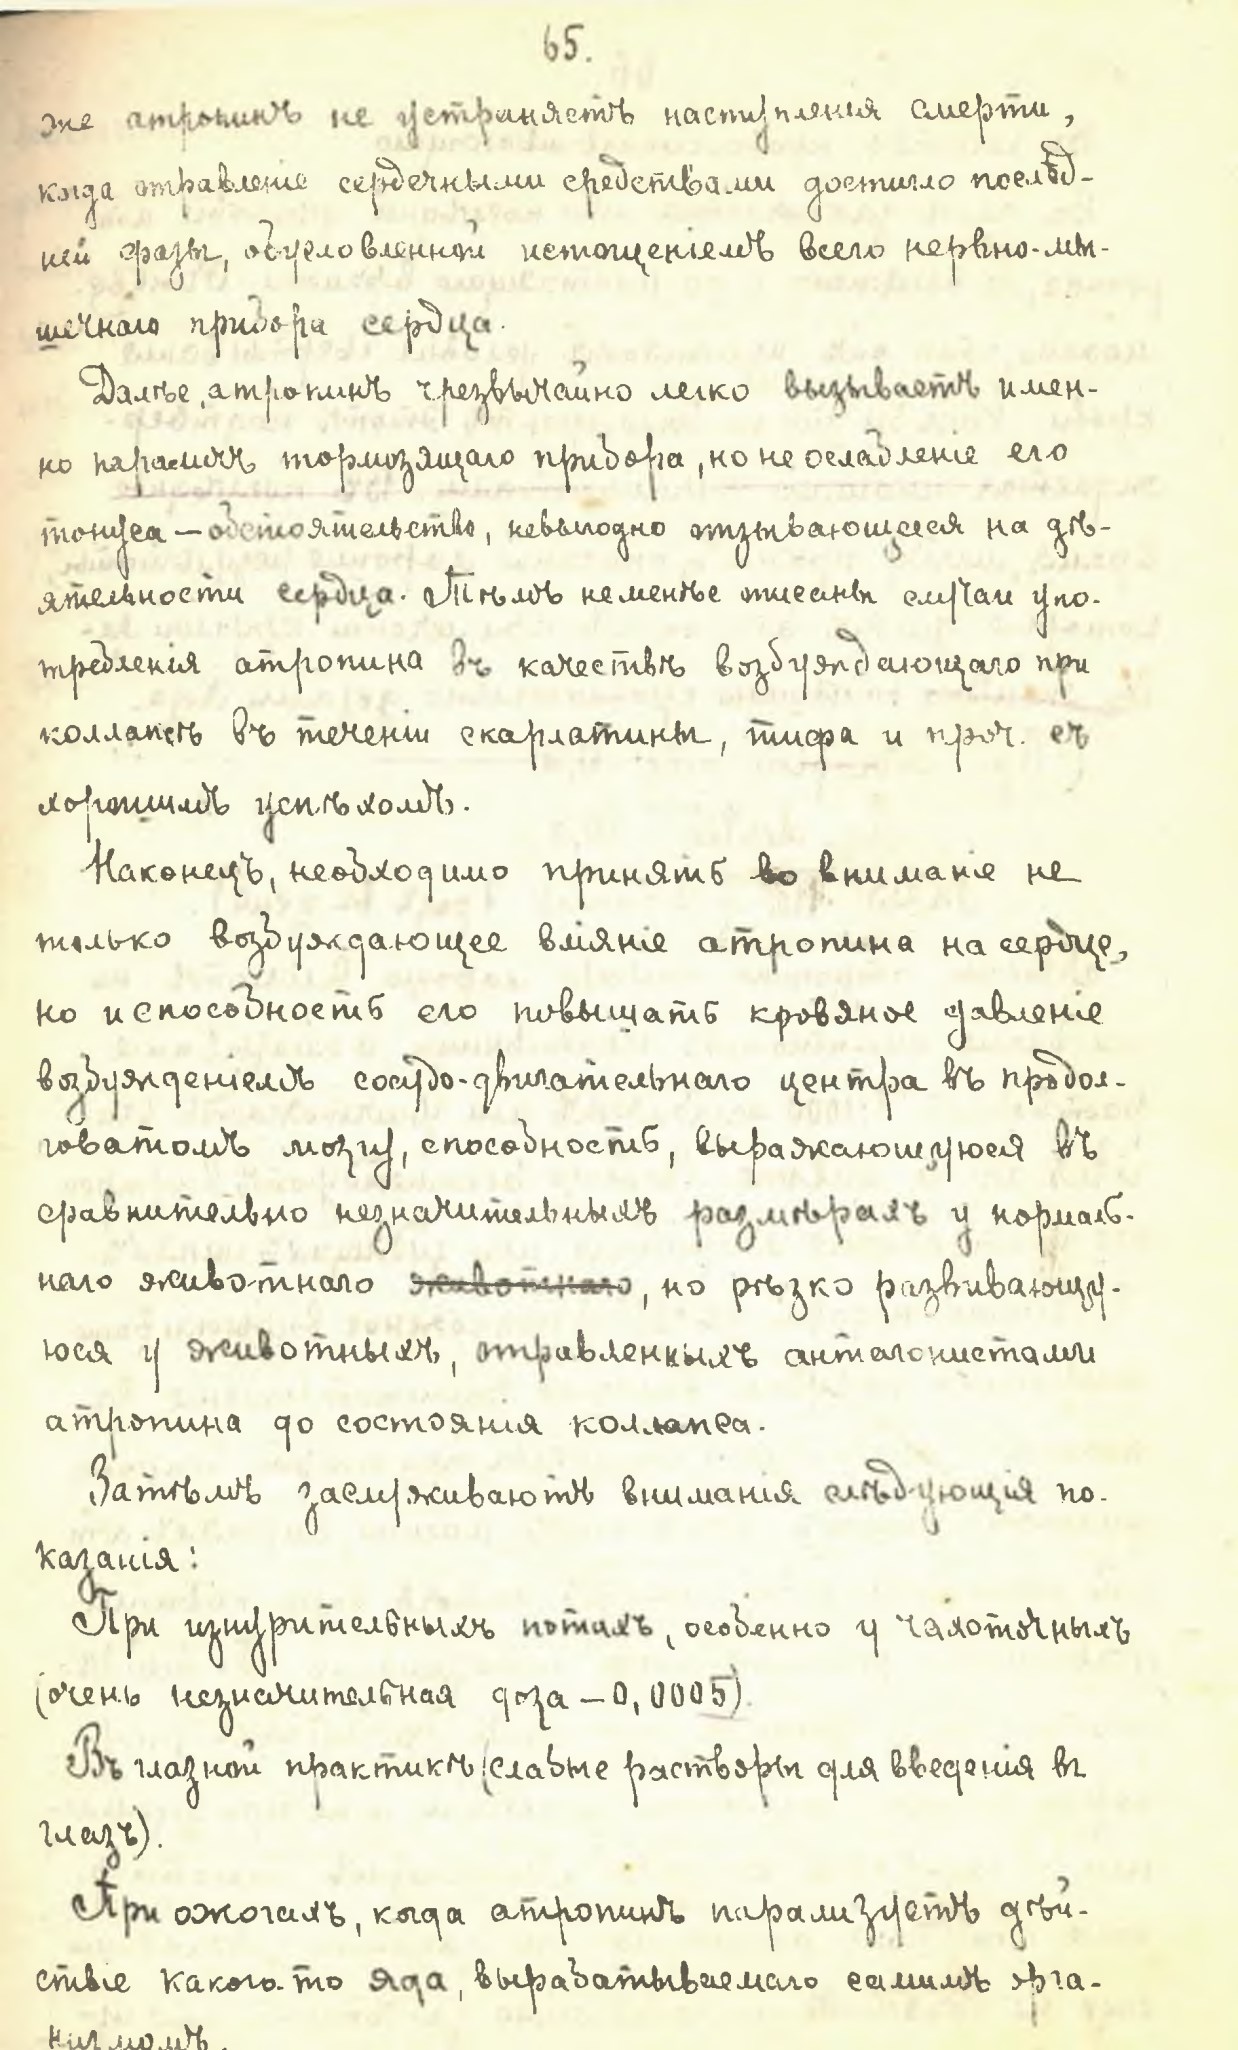 65.
же атропинъ не устраняетъ наступленія смерти,
когда отравленіе сердечными средствами достигло послѣд-
ней фазы, обусловленной истощеніемъ всего нервно-мы-
шечнаго прибора сердца.
Далѣе, атропинъ чрезвычайно легко вызываетъ имен-
но параличъ тормозящаго прибора, но не ослабленіе его
тонуса — обстоятельство, невыгодно отзывающееся на дѣ-
ятельности сердца. Тѣмъ неменѣе описаны случаи упо-
требленія атропина въ качествѣ возбуждающаго при
коллапсѣ въ теченіи скарлатины, тифа и проч. съ
хорошимъ успѣхомъ.
Наконецъ, необходимо принять во вниманіе не
только возбуждающее вліяніе атропина на сердце,
но и способность его повышать кровяное давленіе
возбужденіемъ сосудо-двигательнаго центра въ продол-
говатомъ мозгу, способность, выражающуюся въ
сравнительно незначительныхъ размѣрахъ у нормаль-
наго животнаго животнаго, но рѣзко развивающу-
юся у животныхъ, отравленныхъ антагонистами
атропина до состоянія коллапса.
Затѣмъ заслуживаютъ вниманія слѣдующія по-
казанія:
При изнурительныхъ потахъ, особенно у чахоточныхъ
(очень незначительная доза — 0,0005).
Въ глазной практикѣ (слабые растворы для введенія въ
глазъ).
При ожогахъ, когда атропинъ парализуетъ дѣй-
ствіе какого-то яда, вырабатываемаго самимъ орга-
низмомъ.